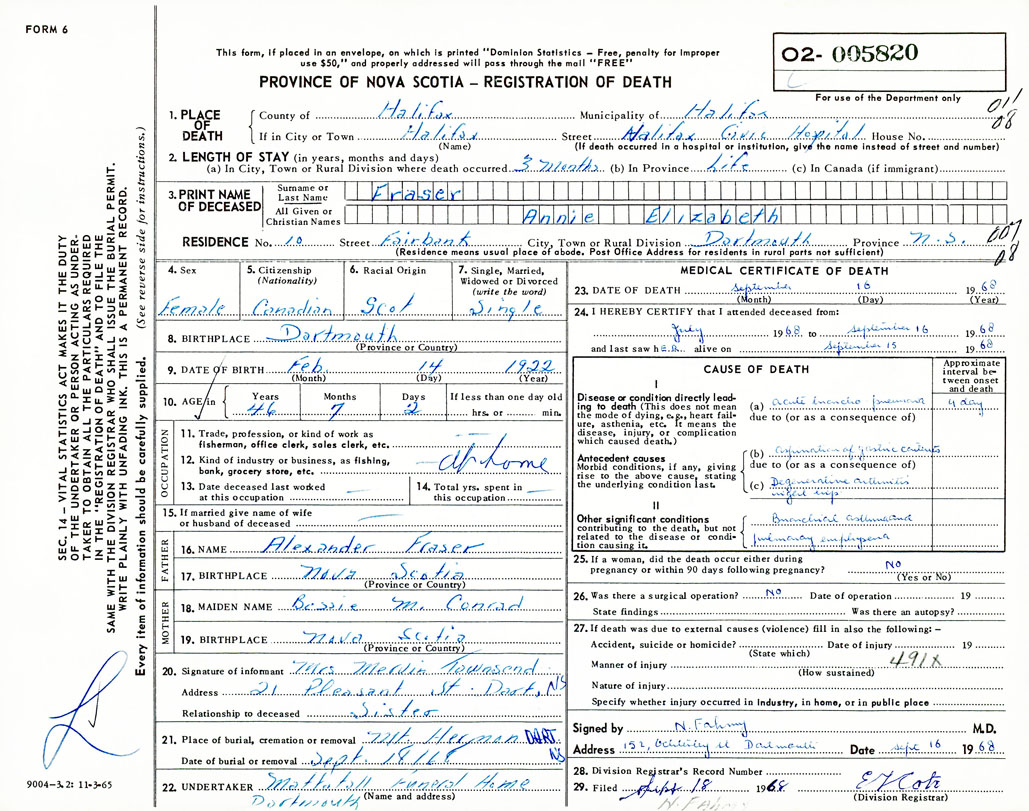 FORM 6
This form, if placed in an envelope, on which is printed "Dominion Statistics – Free, penalty for improper
use $50," and properly addressed will pass through the mail "FREE"
PROVINCE OF NOVA SCOTIA – REGISTRATION OF DEATH
02- 005820
For use of the Department only
011
08
1. PLACE OF DEATH
County of Halifax Municipality of Halifax
If in City or Town Halifax Street Halifax Civic Hospital House No.
(Name) (If death occurred in a hospital or institution, give the name instead of street and number)
2. LENGTH OF STAY (in years, months and days)
(a) In City, Town or Rural Division where death occurred 3 Months (b) In Province Life (c) In Canada (if immigrant)
3. PRINT NAME OF DECEASED
Surname or Last Name Fraser
All Given or Christian Names Annie Elizabeth
RESIDENCE No. 10 Street Fairbank City, Town or Rural Division Dartmouth Province N.S.
007
08
(Residence means usual place of abode. Post Office Address for residents in rural parts not sufficient)
4. Sex
Female
5. Citizenship
(Nationality)
Canadian
6. Racial Origin
Scot
7. Single, Married,
Widowed or Divorced
(write the word)
Single
8. BIRTHPLACE Dartmouth
(Province or Country)
9. DATE OF BIRTH Feb. 14 1922
(Month) (Day) (Year)
10. AGE in
Years Months Days If less than one day old
46 7 2 hrs. or min.
OCCUPATION
11. Trade, profession, or kind of work as
fisherman, office clerk, sales clerk, etc.
12. Kind of industry or business, as fishing,
bank, grocery store, etc. At home
13. Date deceased last worked
at this occupation
14. Total yrs. spent in
this occupation
15. If married give name of wife
or husband of deceased
FATHER
16. NAME Alexander Fraser
17. BIRTHPLACE Nova Scotia
(Province or Country)
MOTHER
18. MAIDEN NAME Bessie M. Conrad
19. BIRTHPLACE Nova Scotia
(Province or Country)
20. Signature of informant Mrs Merlin Townsend
Address 21 Pleasant St. Dart, NS
Relationship to deceased Sister
21. Place of burial, cremation or removal Mt. Hermon DART. NS
Date of burial or removal Sept. 18/68
22. UNDERTAKER Mattatall Funeral Home
Dartmouth (Name and address)
MEDICAL CERTIFICATE OF DEATH
23. DATE OF DEATH September 16 1968
(Month) (Day) (Year)
24. I HEREBY CERTIFY that I attended deceased from:
July 1968 to September 16 1968
and last saw hER alive on September 15 1968
CAUSE OF DEATH
Approximate
interval be-
tween onset
and death
I
Disease or condition directly lead-
ing to death (This does not mean
the mode of dying, e.g., heart fail-
ure, asthenia, etc. It means the
disease, injury, or complication
which caused death.)
(a) acute broncho pneumonia 4 day
due to (or as a consequence of)
Antecedent causes
Morbid conditions, if any, giving
rise to the above cause, stating
the underlying condition last.
(b) aspiration of gastric contents
due to (or as a consequence of)
(c) Degenerative arthritis
II
Other significant conditions
contributing to the death, but not
related to the disease or condi-
tion causing it.
Bronchial asthma and
pulmonary emphysema
25. If a woman, did the death occur either during
pregnancy or within 90 days following pregnancy? NO
(Yes or No)
26. Was there a surgical operation? NO Date of operation 19
State findings Was there an autopsy?
27. If death was due to external causes (violence) fill in also the following: –
Accident, suicide or homicide? Date of injury 19
(State which)
Manner of injury 491X
(How sustained)
Nature of injury
Specify whether injury occurred in industry, in home, or in public place
Signed by N. Fahmy M.D.
Address 152, Dartmouth Date Sept 16 1968
28. Division Registrar's Record Number
29. Filed Sept. 18 1968
(Division Registrar)
N. Fahmy
SEC. 14 – VITAL STATISTICS ACT MAKES IT THE DUTY
OF THE UNDERTAKER OR PERSON ACTING AS UNDER-
TAKER TO OBTAIN ALL THE PARTICULARS REQUIRED
IN THE "REGISTRATION OF DEATH" AND TO FILE THE
SAME WITH THE DIVISION REGISTRAR WHO SHALL ISSUE THE BURIAL PERMIT.
WRITE PLAINLY WITH UNFADING INK. THIS IS A PERMANENT RECORD.
Every item of information should be carefully supplied. (See reverse side for instructions.)
9004-3.2: 11-3-65